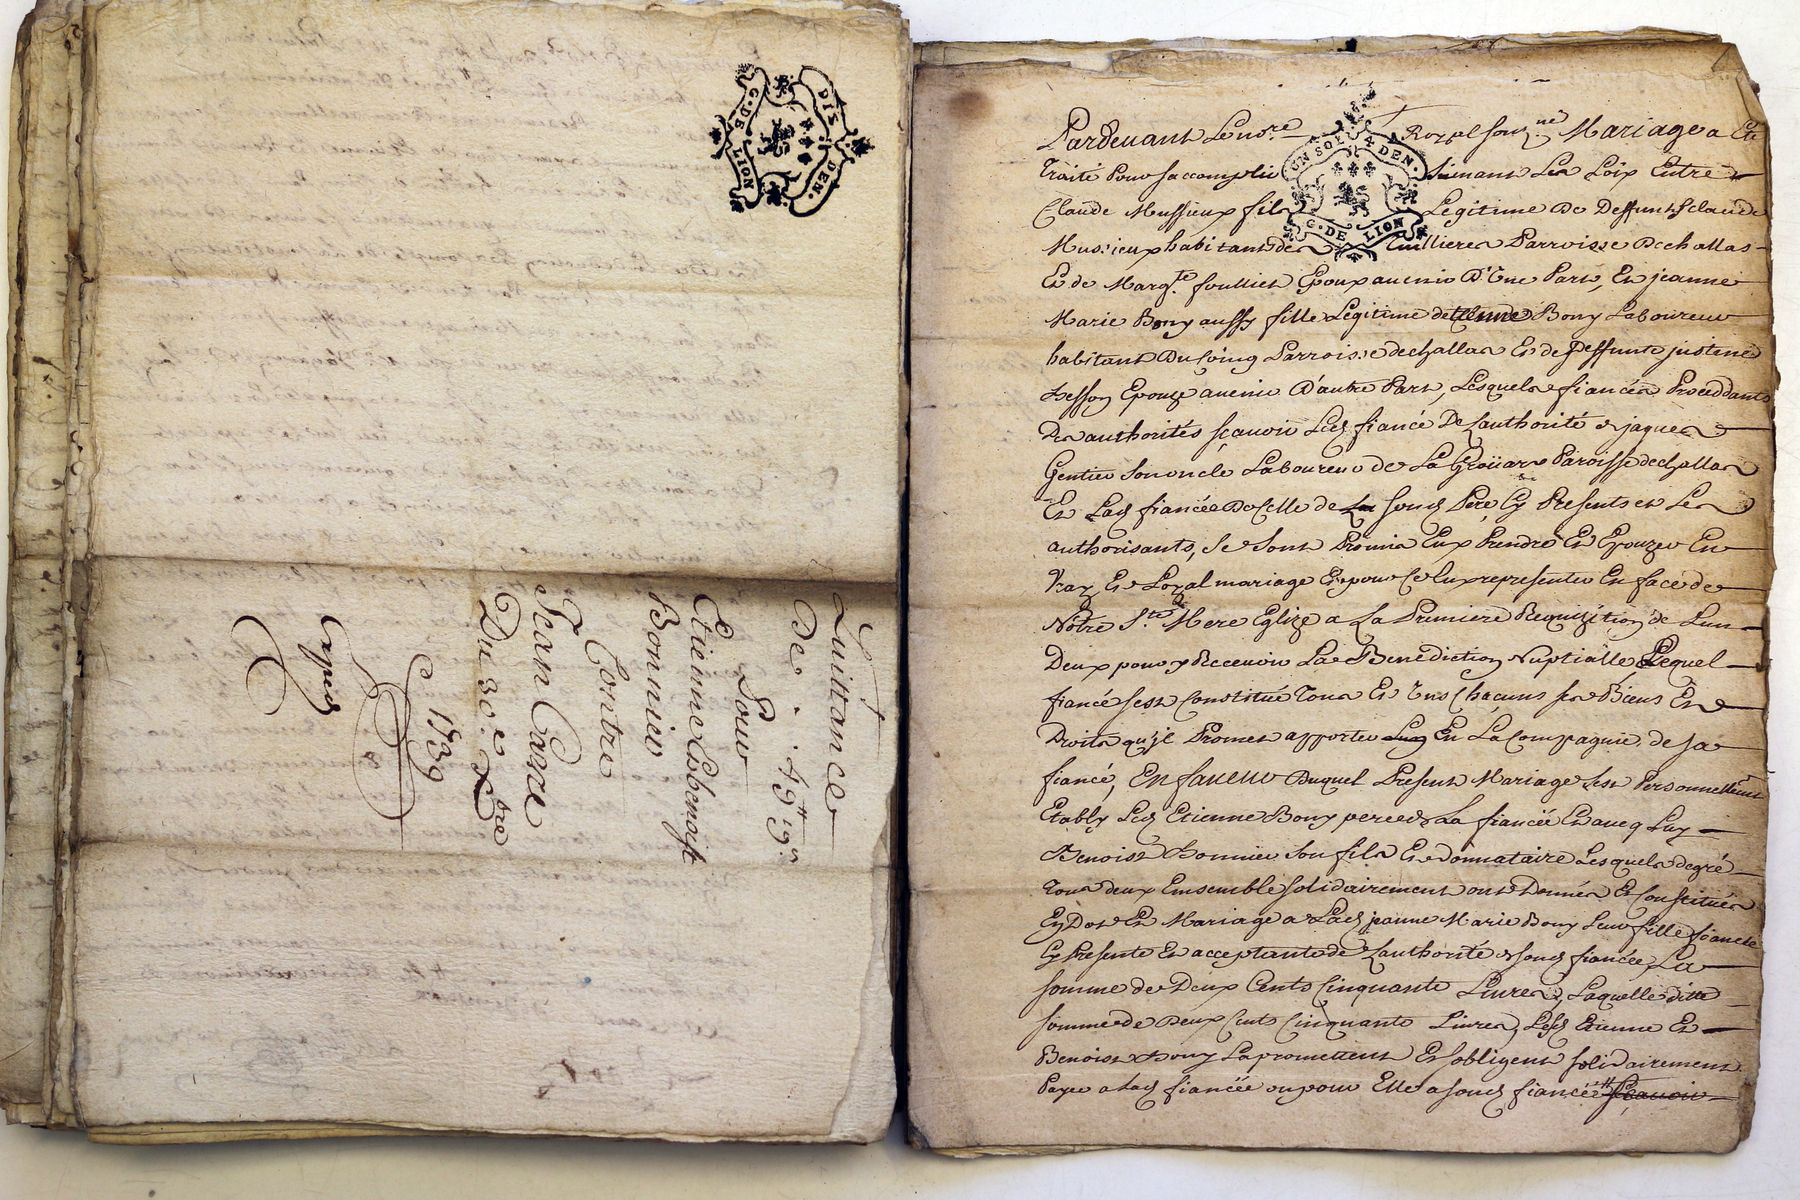 DIX DEN.
G. DE LION
Quittance
De . 49tt 9s
Pour
Etienne Et benoist
Bonnier
Contre
Jean
Du 30e Xbre
1739
UN SOL 4 DEN.
G. DE LION
Pardevant Le no.re Royal sousg.né Mariage a Eté
Traité Pour saccomplir suivant Les Loix Entre
Claude Mussieux fils Legitime De Deffunt Claude
Mussieux habitant des Tuillieres Parroisse De challas
Et de Marg.te Epoux avenir D'Une Part, Et jeanne
Marie Bony aussy fille Legitime de Etienne Bony Laboureur
habitant Du Coing Parroisse de challas Et de Deffunte
Epouze avenir D'autre Part, Lesquels fiancés Proceddants
Des authorités sçavoir Led fiancé De Lauthorité de jaques
Gentier son oncle Laboureur de La Paroisse de challas
Et Lad fiancée De Celle de sond Pere Cy Presents et Les
authorisants, se sont Promis Eux Prendre Et Epouzer En
Vray Et Loyal mariage Et pour Celuy representer En face de
Nôtre S.te Mere Eglize a La Premiere Requizition de Lun
Deux pour y Recevoir La Benediction Nuptialle Lequel
fiancé sest Constitué Tous Et Uns Chacuns ses Biens Et
Droits qu'il Promet apporter En La Compagnie de sa
fiancé, En faveur Duquel Present Mariage sest Personnellement
Etably Led Etienne Bony pere de La fiancée Et avec Luy
Benoist Bonnier son fils Et donnataire Lesquels de gré
Tous deux Emsemble solidairement ont Donnés Et Constitués
En Dot Et Mariage a Lad jeanne Marie Bony Leur fille fiancée
Cy Presente Et acceptante de Lauthorité de sond fiancée La
somme de Deux Cents Cinquante Livres, Laquelle ditte
somme de Deux Cents Cinquante Livres, Lesd Etienne Et
Benoist Bony La promettent Et sobligent solidairement
Payer a Lad fiancée ou pour Elle a sond fiancée sçavoir